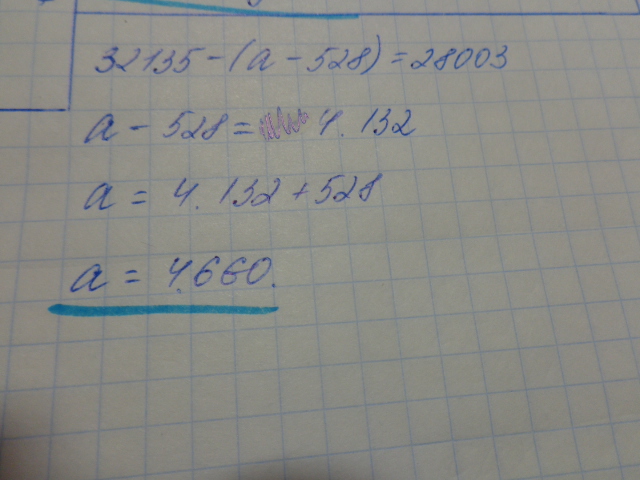 32135-(a-528)=28003
a-528= 4.132
a = 4.132+528
a = 4.660.